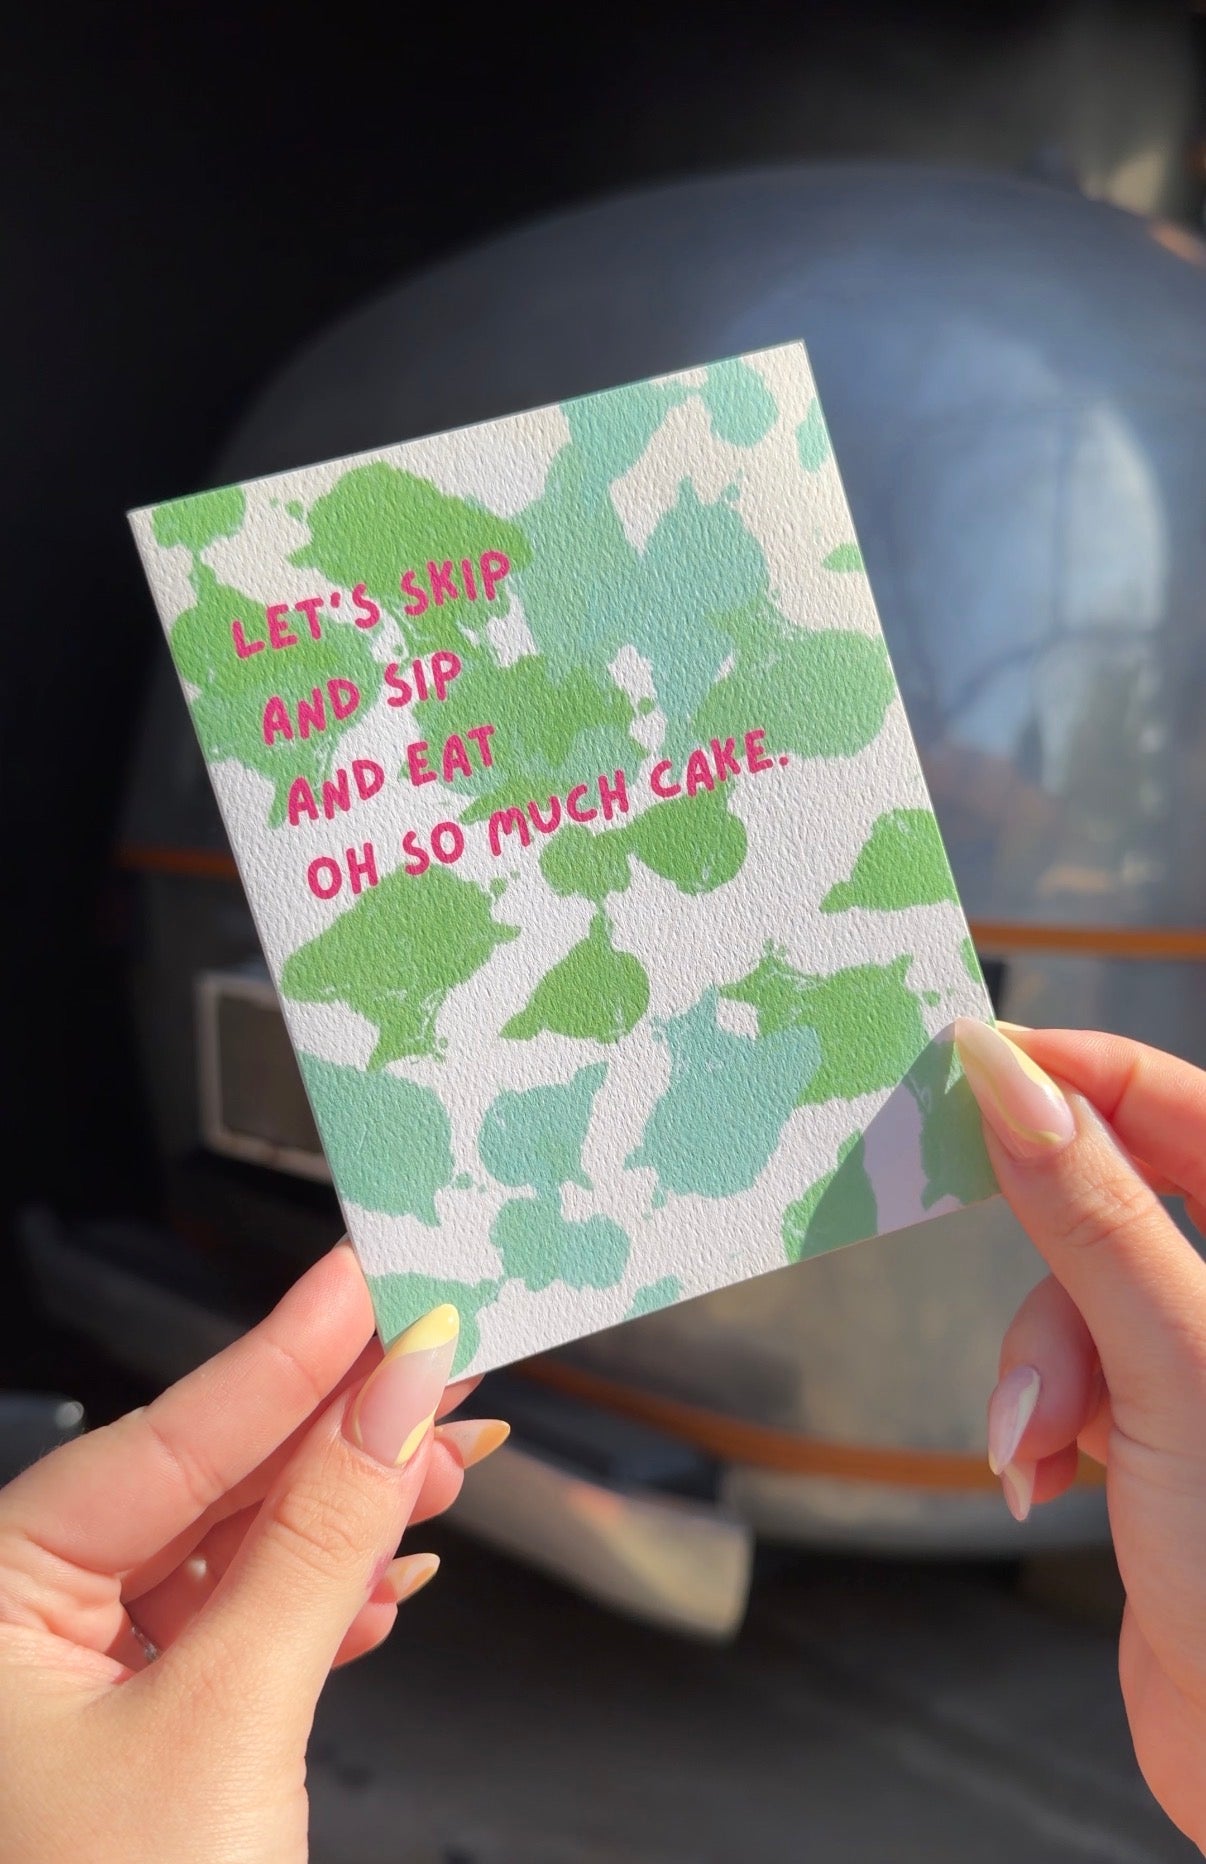 LET'S SKIP
AND SIP
AND EAT
OH SO MUCH CAKE.